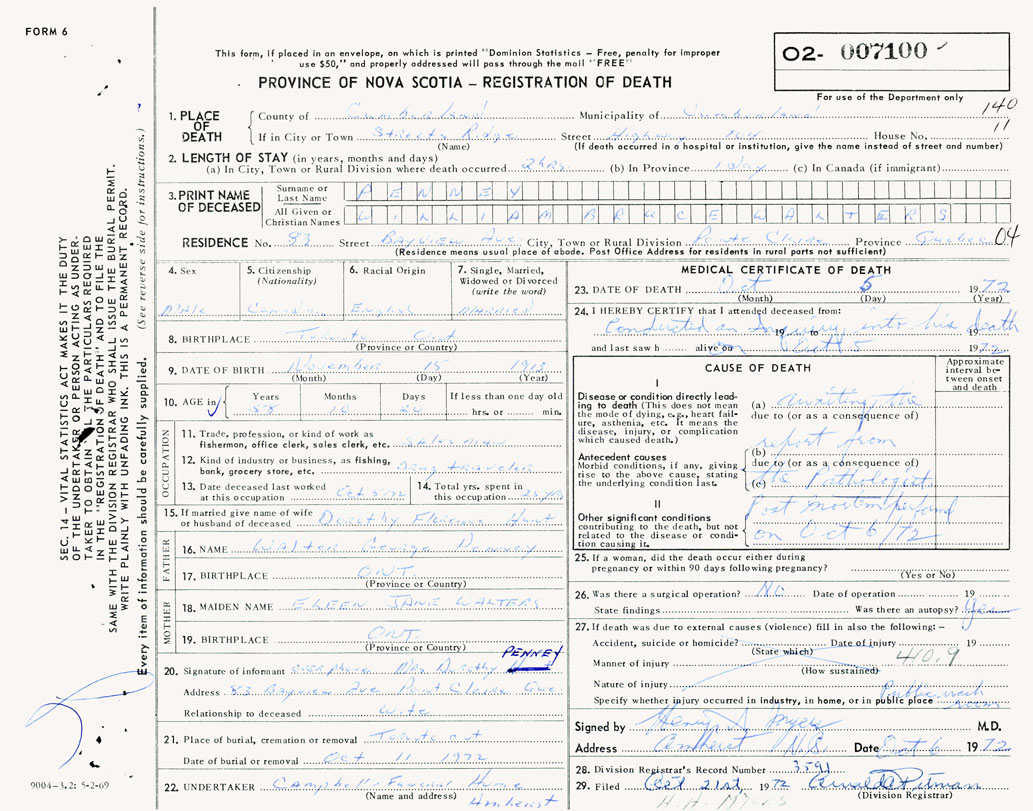 FORM 6
This form, if placed in an envelope, on which is printed "Dominion Statistics – Free, penalty for improper
use $50," and properly addressed will pass through the mail "FREE"
PROVINCE OF NOVA SCOTIA – REGISTRATION OF DEATH
02- 007100
For use of the Department only
140
11
1. PLACE OF DEATH
County of Cumberland Municipality of Cumberland
If in City or Town Streets Ridge Street Highway House No.
(Name) (If death occurred in a hospital or institution, give the name instead of street and number)
2. LENGTH OF STAY (in years, months and days)
(a) In City, Town or Rural Division where death occurred 2 hrs. (b) In Province 1 day (c) In Canada (if immigrant)
3. PRINT NAME OF DECEASED
Surname or Last Name PENNEY
All Given or Christian Names WILLIAM BRUCE WALTERS
RESIDENCE No. 83 Street Bayview Ave City, Town or Rural Division Pointe Claire Province Quebec 04
(Residence means usual place of abode. Post Office Address for residents in rural parts not sufficient)
4. Sex
Male
5. Citizenship (Nationality)
Canadian
6. Racial Origin
English
7. Single, Married, Widowed or Divorced (write the word)
Married
8. BIRTHPLACE Toronto Ont
(Province or Country)
9. DATE OF BIRTH November 15 1913
(Month) (Day) (Year)
10. AGE in Years 58 Months 10 Days 20 If less than one day old hrs. or min.
OCCUPATION
11. Trade, profession, or kind of work as fisherman, office clerk, sales clerk, etc. Salesman
12. Kind of industry or business, as fishing, bank, grocery store, etc. Drug traveler
13. Date deceased last worked at this occupation Oct 5/72
14. Total yrs. spent in this occupation 25 yrs
15. If married give name of wife or husband of deceased Dorothy Florence Hunt
FATHER
16. NAME Walter George Penney
17. BIRTHPLACE ONT.
(Province or Country)
MOTHER
18. MAIDEN NAME EILEEN JANE WALTERS
19. BIRTHPLACE ONT.
(Province or Country)
PENNEY
20. Signature of informant over phone Mrs Dorothy Hunt
Address 83 Bayview Ave Point Claire Que
Relationship to deceased wife
21. Place of burial, cremation or removal Toronto Ont
Date of burial or removal Oct 11 1972
22. UNDERTAKER Campbell's Funeral Home
(Name and address) Amherst
MEDICAL CERTIFICATE OF DEATH
23. DATE OF DEATH Oct 5 1972
(Month) (Day) (Year)
24. I HEREBY CERTIFY that I attended deceased from:
Conducted an Inquiry into his death
19 to 19
and last saw h alive on on Oct 5 1972
CAUSE OF DEATH
Approximate interval between onset and death
I
Disease or condition directly leading to death (This does not mean the mode of dying, e.g., heart failure, asthenia, etc. It means the disease, injury, or complication which caused death.)
(a) awaiting the
due to (or as a consequence of)
report from
Antecedent causes
Morbid conditions, if any, giving rise to the above cause, stating the underlying condition last.
(b)
due to (or as a consequence of)
(c) the Pathologist
II
Other significant conditions contributing to the death, but not related to the disease or condition causing it.
Post mortem
on Oct 6/72
25. If a woman, did the death occur either during pregnancy or within 90 days following pregnancy?
(Yes or No)
26. Was there a surgical operation? No Date of operation 19
State findings Was there an autopsy? Yes
27. If death was due to external causes (violence) fill in also the following: –
Accident, suicide or homicide? Date of injury 19
(State which)
Manner of injury 410.9
(How sustained)
Nature of injury
Specify whether injury occurred in industry, in home, or in public place Public wash room
Signed by Henry M.D.
Address Amherst N.S. Date Oct 6 1972
28. Division Registrar's Record Number 3591
29. Filed Oct 21st, 1972
(Division Registrar)
SEC. 14 – VITAL STATISTICS ACT MAKES IT THE DUTY
OF THE UNDERTAKER OR PERSON ACTING AS UNDER-
TAKER TO OBTAIN ALL THE PARTICULARS REQUIRED
IN THE "REGISTRATION OF DEATH" AND TO FILE THE
SAME WITH THE DIVISION REGISTRAR WHO SHALL ISSUE THE BURIAL PERMIT.
WRITE PLAINLY WITH UNFADING INK. THIS IS A PERMANENT RECORD.
Every item of information should be carefully supplied. (See reverse side for instructions.)
9004–3.2: 5-2-69